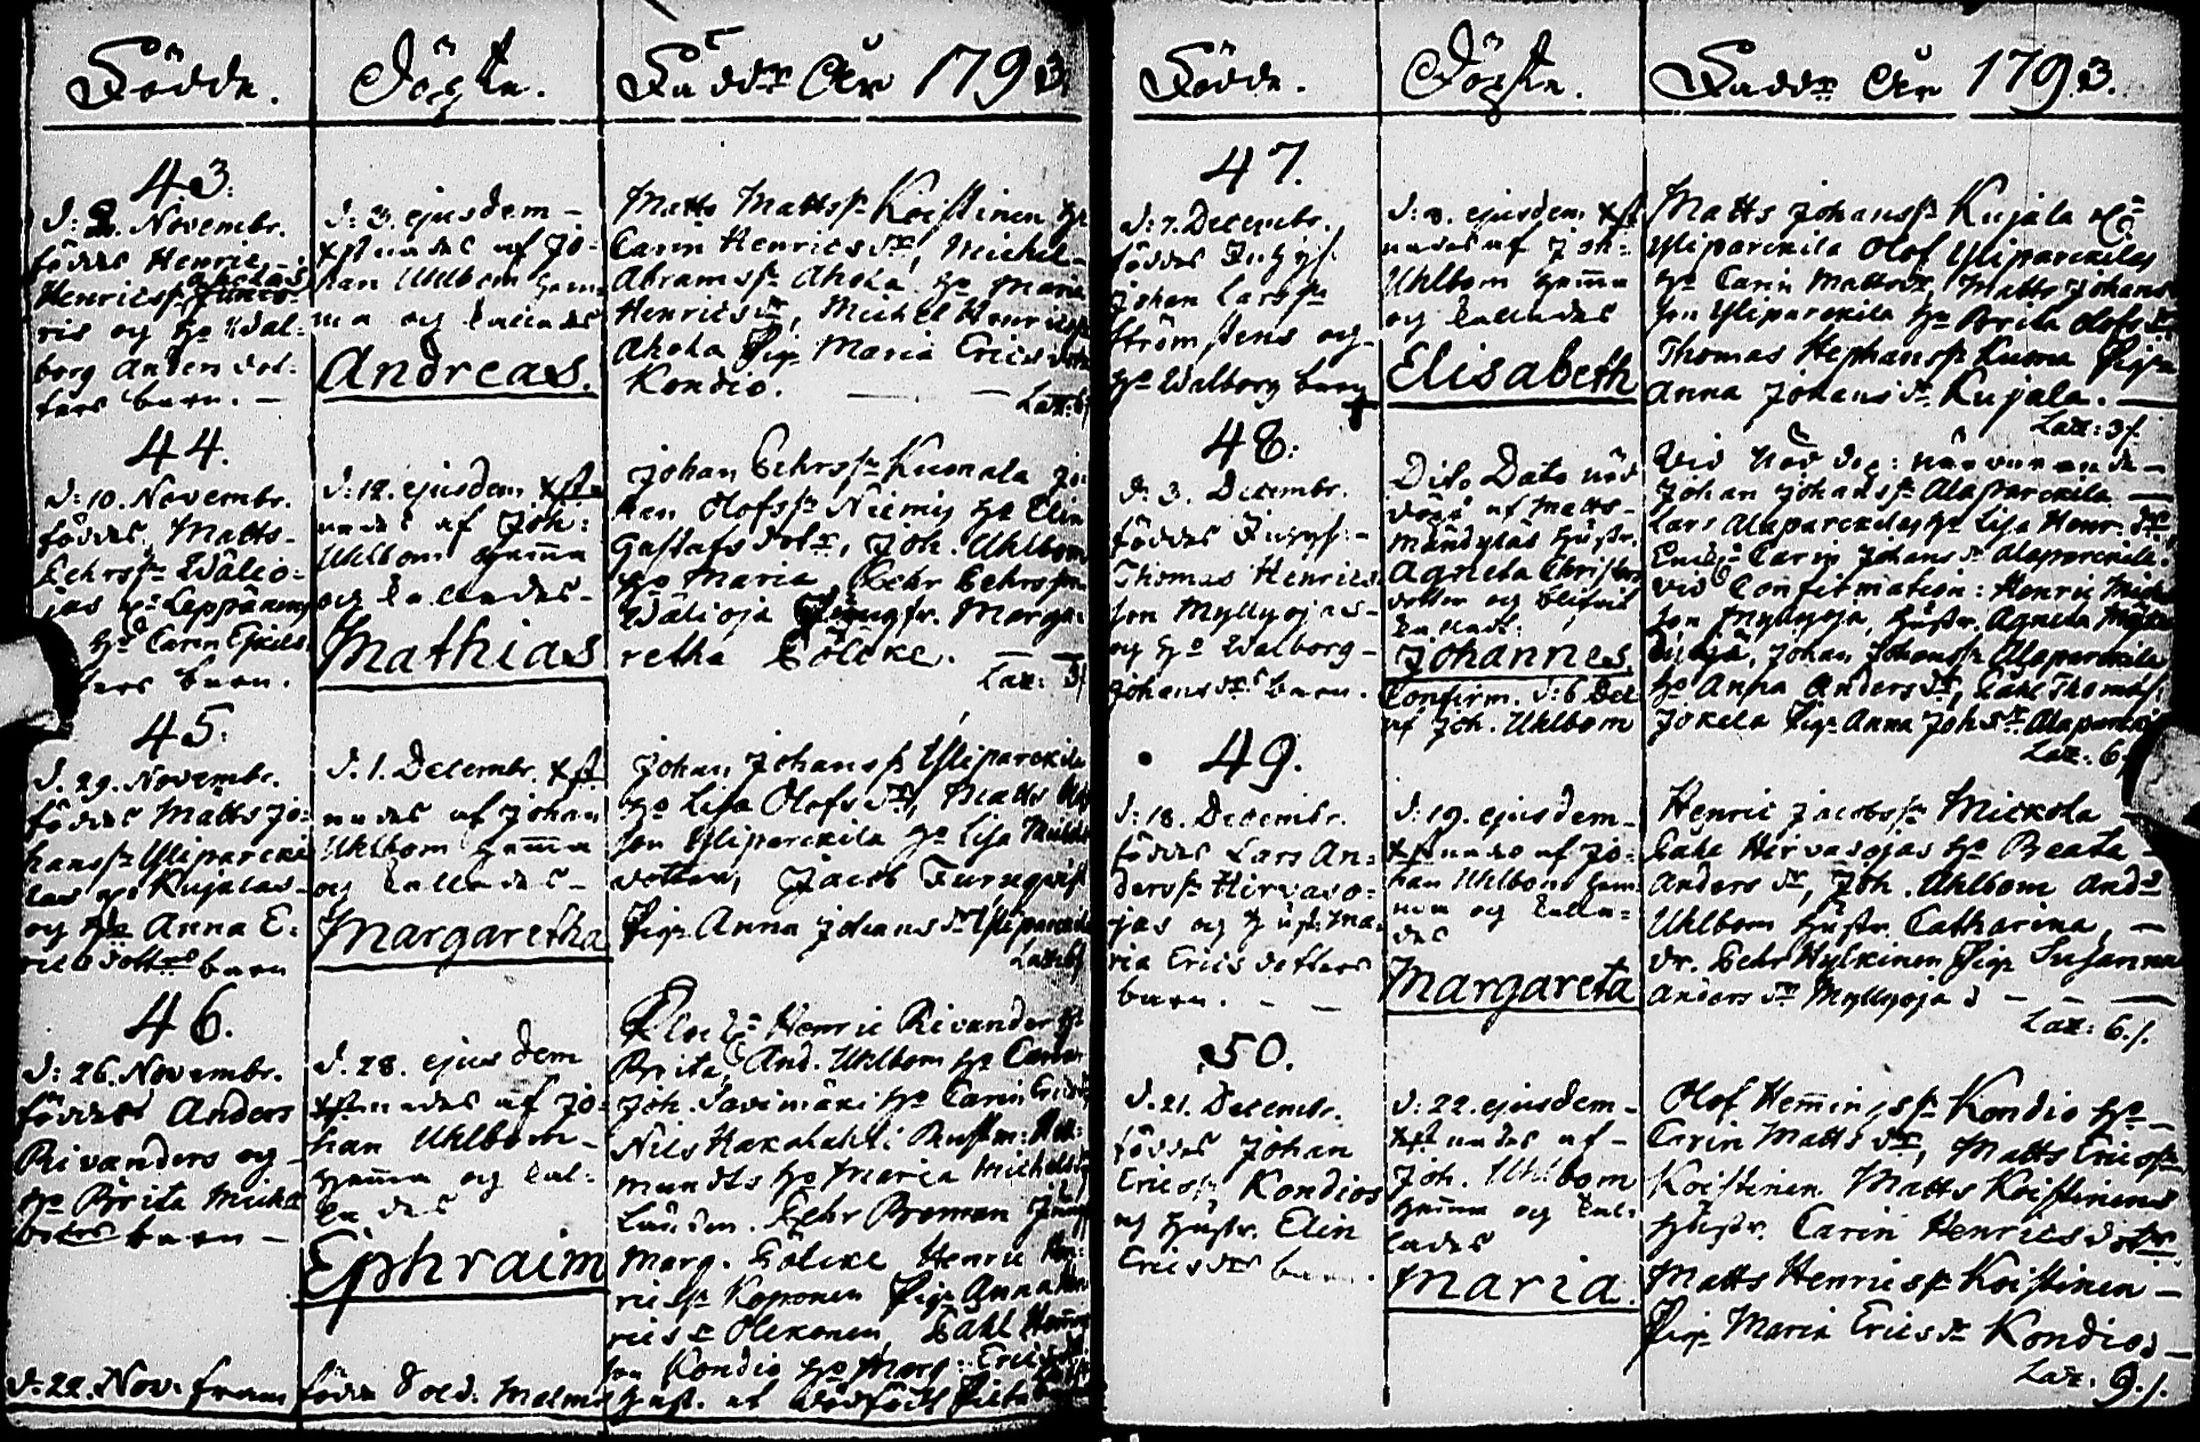 Födde.
Döpte.
Faddr År 1793.
43.
d: 2. Novembr.
föddes Henric
Aholas
Henricsß
ris og Ho Wal-
borg Anders dot-
ters barn. –
d: 3. ejusdem –
xstnades af Jo-
han Uhlbom hem-
ma og kallades
Andreas.
Matts Mattsß Koistinen Ho
Carin Henricsdr, Michel
Abramsß Ahola Ho Maria
Henricsdr, Michel Henricsß
Ahola Pig. Maria Ericsdotr
Kondio. –
44.
d: 10. Novembr.
föddes Matts
Pehrsß Wälio-
jas Leppänens
Ho Carin Eskils
ters barn.
d: 12. ejusdem xst
nades af Joh:
Uhlbom hemma
og kallades –
Mathias
Johan Pehrsß Kuonala Jo-
han Olofsß Niemis Ho Elin
Gustafs dotr, Joh. Uhlbom
Ho Maria, Pehr Pehrsson
Wälioja Jungfr. Marga-
retha Bölcke. –
Laz: 3/
45.
d. 29. Novembr.
föddes Matts Jo-
hansß Ylipareki
las Kujalas
og Ho Anna E-
rics dotters barn
d. 1. Decembr. xst
nades af Johan
Uhlbom hemma
og kallades –
Margaretha
Johan Johansß Ylipareckila
Ho Lisa Olofsdr, Matts
son Ylipareckila Ho Lisa Michels
dotter, Jacob Turnqvist
Pig. Anna Johansdr Ylipareckila
46.
d: 26. Novembr.
föddes Anders
Rivanders og
Ho Brita Michels
barn –
d. 28. ejusdem
xstnades af Jo-
han Uhlbom –
hemma og kal-
lades
Ephraim
Henric Rivander Ho
Brita, And. Uhlbom Ho Carin
Joh. Savimäki Ho Carin Ericsdr
Nils Hakalahti
mundts Ho Maria Michelsdr
Pehr Broman Jungf
Marg. Bölcke Henric Hen-
ricsß Koponen Pig. Anna Hen-
rics dr Olekonen, Påhl Hemm
son Kondio Ho Marg: Ericsdr
d: 22. Nov. fram födde Sold. Malms Hust. et dödfödt
Födde.
Döpte.
Faddr År 1793.
47.
d: 7. Decembr.
föddes Inhys.
Johan Larsß
Strömstens og
Ho Walborg barn
d: 8. ejusdem xst
nades af Joh:
Uhlbom hemma
og kallades
Elisabeth
Matts Johansß Kujala
Ylipareckila Olof Ylipareckilas
Ho Carin Mattsdr, Matts Johans
son Ylipareckila Ho Brita Olofsdr
Thomas Stephansß Kuona Pig.
Anna Johansdr Kujala. –
Laz: 3/.
48.
d. 3. Decembr.
föddes Inhys: –
Thomas Henrics
son Myllyojas –
og Ho Walborg –
Johansdrs barn.
Dito Dato nöd
döpt af Matts
Mändyläs Hustr.
Agneta Christers
dotter og blifvit
kallad:
Johannes.
Confirm. d: 6 Dec
af Joh. Uhlbom
Vid Nöd dop: närvarande –
Johan Johansß Alapareckila –
Lars Alapareckilas Ho Lisa Henr. dr
Carin Johansdr Alapareckila.
Vid Confirmation: Henric Mich
son Myllyoja, Hustr. Agneta
Johan Johansß Alapareckila
Ho Anna Andersdr, Påhl Thomasß
Jokela Pig. Anna Joh.dr Alapareckila
Laz: 6.
49.
d: 18. Decembr.
föddes Lars An-
dersß Hirvaso-
jas og Hust: Ma-
ria Ericsdotters
barn. – –
d: 19. ejusdem –
xstnades af Jo-
han Uhlbom hem-
ma og kalla-
des
Margareta
Henric Jacobsß Mickola –
Påhl Hirvasojas Ho Beata –
Andersdr, Joh. Uhlbom Andrs
Uhlbom Hustr. Catharina, –
Dr. Pehr Hylkinen Pig. Susanna
Andersdr Myllyoja – – –
Laz: 6./.
50.
d. 21. Decembr.
föddes Johan
Ericsß Kondios
og Hustr. Elin
Ericsdrs barn.
d: 22. ejusdem –
xstnades af –
Joh. Uhlbom
hemma og kal-
lades
Maria.
Olof Hemingsß Kondio Ho –
Carin Mattsdr, Matts Ericsß
Koistinen Matts Koistinens
Hustr. Carin Henricsdotr
Matts Henricsß Koistinen –
Pig. Maria Ericsdr Kondio –
Laz: 9./.